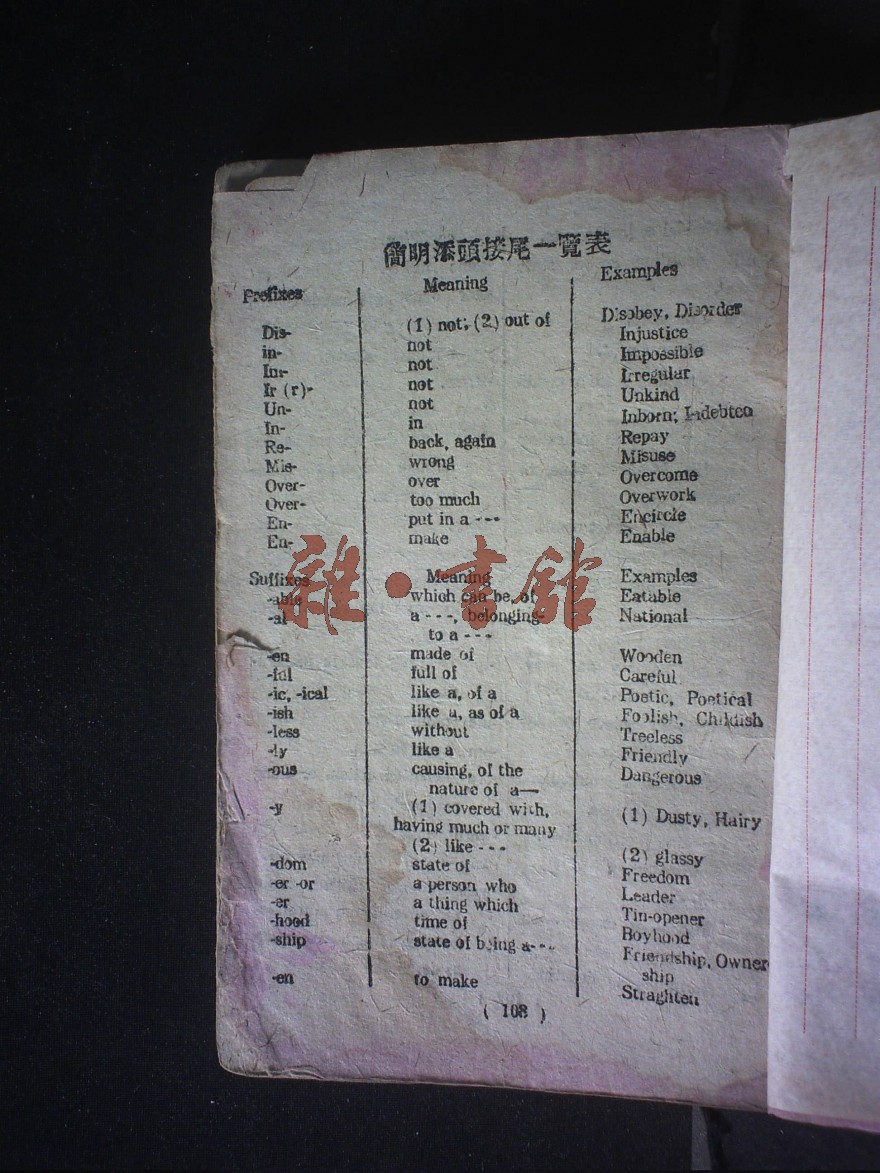 簡明添頭接尾一覽表
Prefixes Meaning Examples
Dis- (1) not; (2) out of Disobey, Disorder
in- not Injustice
Im- not Impossible
Ir (r)- not Irregular
Un- not Unkind
In- in Inborn; Indebted
Re- back, again Repay
Mis- wrong Misuse
Over- over Overcome
Over- too much Overwork
En- put in a --- Encircle
En- make Enable
雜·書館
Suffixes Meaning Examples
-able which can be, of Eatable
-al a ---, belonging- National
to a ---
-en made of Wooden
-ful full of Careful
-ic, -ical like a, of a Poetic, Poetical
-ish like a, as of a Foolish, Childish
-less without Treeless
-ly like a Friendly
-ous causing, of the Dangerous
nature of a—
-y (1) covered with, (1) Dusty, Hairy
having much or many
(2) like --- (2) glassy
-dom state of Freedom
-er -or a person who Leader
-er a thing which Tin-opener
-hood time of Boyhood
-ship state of being a--- Friendship, Owner
ship
-en to make Straghten
( 108 )